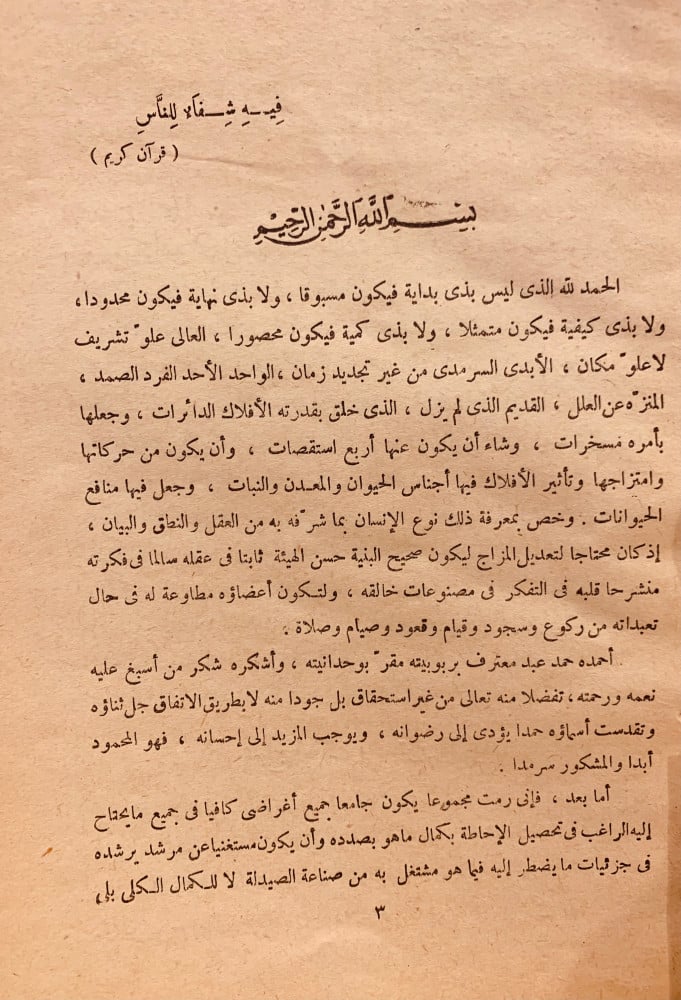 فِيـهِ شِـفَاءٌ لِلنَّاسِ
( قرآن كريم )
بِسْمِ اللَّهِ الرَّحْمٰنِ الرَّحِيْمِ
الحمد لله الذى ليس بذى بداية فيكون مسبوقا ، ولا بذى نهاية فيكون محدودا ،
ولا بذى كيفية فيكون متمثلا ، ولا بذى كمية فيكون محصورا ، العالى علوّ تشريف
لا علوّ مكان ، الأبدى السرمدى من غير تجديد زمان ، الواحد الأحد الفرد الصمد ،
المنزّه عن العلل ، القديم الذى لم يزل ، الذى خلق بقدرته الأفلاك الدائرات ، وجعلها
بأمره مسخرات ، وشاء أن يكون عنها أربع استقصات ، وأن يكون من حركاتها
وامتزاجها وتأثير الأفلاك فيها أجناس الحيوان والمعدن والنبات ، وجعل فيها منافع
الحيوانات . وخص بمعرفة ذلك نوع الإنسان بما شرّفه به من العقل والنطق والبيان ،
إذ كان محتاجا لتعديل المزاج ليكون صحيح البنية حسن الهيئة ثابتا فى عقله سالما فى فكرته
منشرحا قلبه فى التفكر فى مصنوعات خالقه ، ولتكون أعضاؤه مطاوعة له فى حال
تعبداته من ركوع وسجود وقيام وقعود وصيام وصلاة .
أحمده حمد عبد معترف بربوبيته مقرّ بوحدانيته ، وأشكره شكر من أسبغ عليه
نعمه ورحمته ، تفضلا منه تعالى من غير استحقاق بل جودا منه لا بطريق الاتفاق جل ثناؤه
وتقدست أسماؤه حمدا يؤدى إلى رضوانه ، ويوجب المزيد إلى إحسانه ، فهو المحمود
أبدا والمشكور سرمدا .
أما بعد ، فإنى رمت مجموعا يكون جامعا جميع أغراضى كافيا فى جميع ما يحتاج
إليه الراغب فى تحصيل الإحاطة بكمال ماهو بصدده وأن يكون مستغنيا عن مرشد يرشده
فى جزئيات ما يضطر إليه فيما هو مشتغل به من صناعة الصيدلة لا للكمال الكلى بلى
٣